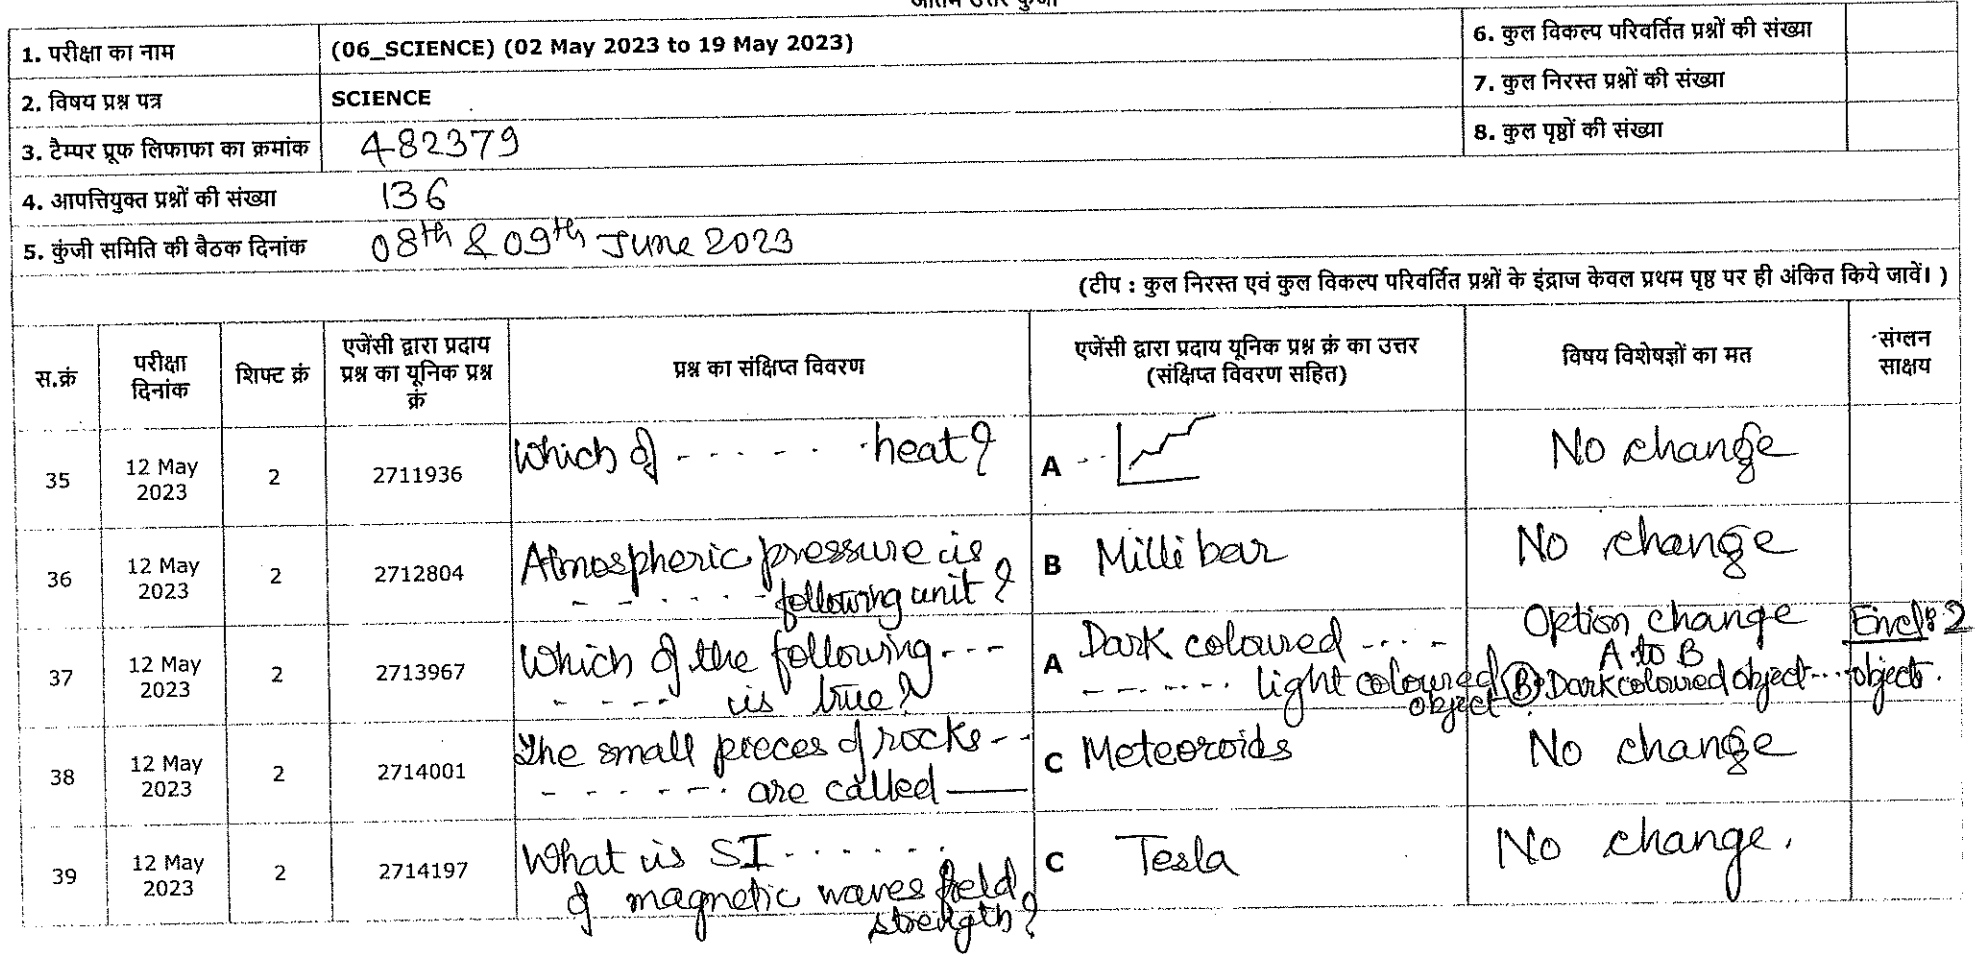 अंतिम उत्तर कुंजी
1. परीक्षा का नाम (06_SCIENCE) (02 May 2023 to 19 May 2023) 6. कुल विकल्प परिवर्तित प्रश्नों की संख्या
2. विषय प्रश्न पत्र SCIENCE 7. कुल निरस्त प्रश्नों की संख्या
3. टैम्पर प्रूफ लिफाफा का क्रमांक 482379 8. कुल पृष्ठों की संख्या
4. आपत्तियुक्त प्रश्नों की संख्या 136
5. कुंजी समिति की बैठक दिनांक 08th & 09th June 2023
(टीप : कुल निरस्त एवं कुल विकल्प परिवर्तित प्रश्नों के इंद्राज केवल प्रथम पृष्ठ पर ही अंकित किये जावें। )
स.क्रं
परीक्षा
दिनांक
शिफ्ट क्रं
एजेंसी द्वारा प्रदाय
प्रश्न का यूनिक प्रश्न
क्रं
प्रश्न का संक्षिप्त विवरण
एजेंसी द्वारा प्रदाय यूनिक प्रश्न क्रं का उत्तर
(संक्षिप्त विवरण सहित)
विषय विशेषज्ञों का मत
संग्लन
साक्षय
35
12 May
2023
2
2711936
Which of - - - - - - heat?
A
No change
36
12 May
2023
2
2712804
Atmospheric pressure is
- - - - - - following unit?
B Milli bar
No change
37
12 May
2023
2
2713967
Which of the following - - -
- - - - is true?
A Dark coloured - - - -
- - - - - - light coloured
object
Option change
A to B
(B) Dark coloured object - - - object.
Encl: 2
38
12 May
2023
2
2714001
The small pieces of rocks - -
- - - - - - are called ___
C Meteoroids
No change
39
12 May
2023
2
2714197
What is SI - - - - - -
of magnetic waves field
strength?
C Tesla
No change.